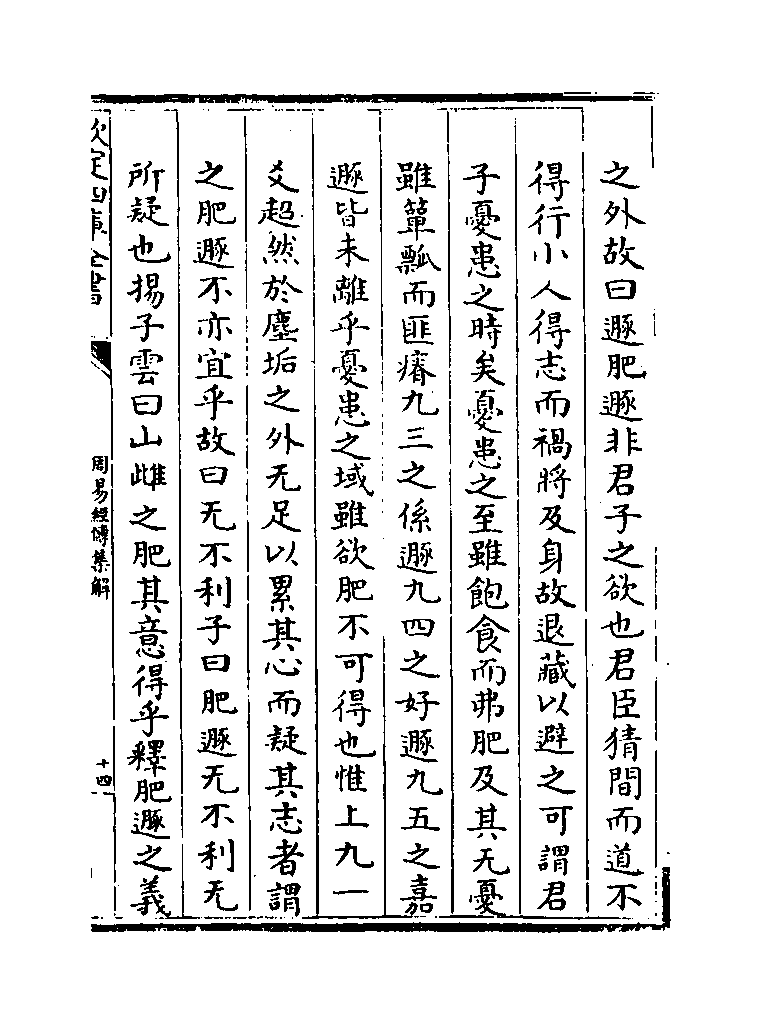 之外故曰遯肥遯非君子之欲也君臣猜間而道不
得行小人得志而禍將及身故退藏以避之可謂君
子憂患之時矣憂患之至雖飽食而弗肥及其无憂
雖簞瓢而匪瘠九三之係遯九四之好遯九五之嘉
遯皆未離乎憂患之域雖欲肥不可得也惟上九一
爻超然於塵垢之外无足以累其心而疑其志者謂
之肥遯不亦宜乎故曰无不利子曰肥遯无不利无
所疑也揚子雲曰山雌之肥其意得乎釋肥遯之義
欽定四庫全書
周易經傳集解
十四